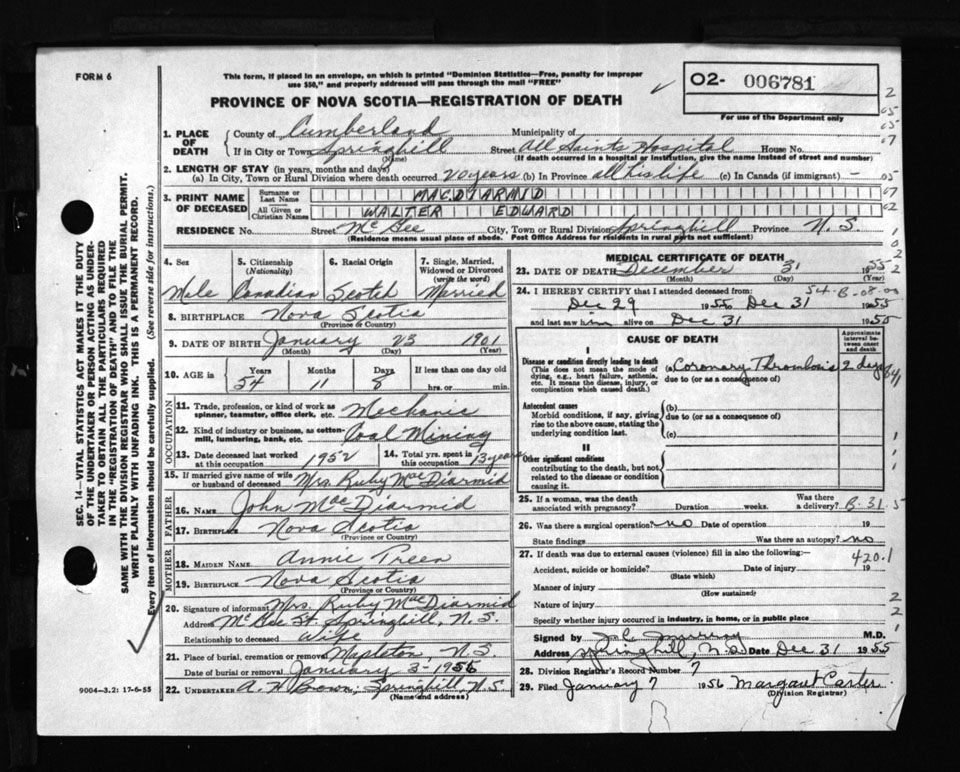 FORM 6
This form, if placed in an envelope, on which is printed "Dominion Statistics—Free, penalty for improper
use $50," and properly addressed will pass through the mail "FREE"
O2- 006781
For use of the Department only
PROVINCE OF NOVA SCOTIA—REGISTRATION OF DEATH
SEC. 14—VITAL STATISTICS ACT MAKES IT THE DUTY
OF THE UNDERTAKER OR PERSON ACTING AS UNDER-
TAKER TO OBTAIN ALL THE PARTICULARS REQUIRED
IN THE "REGISTRATION OF DEATH" AND TO FILE THE
SAME WITH THE DIVISION REGISTRAR WHO SHALL ISSUE THE BURIAL PERMIT.
WRITE PLAINLY WITH UNFADING INK. THIS IS A PERMANENT RECORD.
Every item of information should be carefully supplied. (See reverse side for instructions.)
1. PLACE OF DEATH
County of Cumberland Municipality of
If in City or Town Springhill Street All Saints Hospital House No.
(Name) (If death occurred in a hospital or institution, give the name instead of street and number)
2. LENGTH OF STAY (in years, months and days)
(a) In City, Town or Rural Division where death occurred 20 years (b) In Province all his life (c) In Canada (if immigrant) —
3. PRINT NAME OF DECEASED
Surname or Last Name MACDIARMID
All Given or Christian Names WALTER EDWARD
RESIDENCE No. Street McGee City, Town or Rural Division Springhill Province N.S.
(Residence means usual place of abode. Post Office Address for residents in rural parts not sufficient)
4. Sex 5. Citizenship (Nationality) 6. Racial Origin 7. Single, Married, Widowed or Divorced (write the word)
Male Canadian Scotch Married
8. BIRTHPLACE Nova Scotia
(Province or Country)
9. DATE OF BIRTH January 23 1901
(Month) (Day) (Year)
10. AGE is Years Months Days If less than one day old
54 11 8 hrs. or min.
OCCUPATION
11. Trade, profession, or kind of work as spinner, teamster, office clerk, etc. Mechanic
12. Kind of industry or business, as cotton-mill, lumbering, bank, etc. Coal Mining
13. Date deceased last worked at this occupation 1952 14. Total yrs. spent in this occupation 13 years
15. If married give name of wife or husband of deceased Mrs. Ruby MacDiarmid
FATHER
16. NAME John MacDiarmid
17. BIRTHPLACE Nova Scotia
(Province or Country)
MOTHER
18. MAIDEN NAME Annie Treen
19. BIRTHPLACE Nova Scotia
(Province or Country)
20. Signature of informant Mrs. Ruby MacDiarmid
Address McGee St. Springhill, N.S.
Relationship to deceased Wife
21. Place of burial, cremation or removal Mapleton, N.S.
Date of burial or removal January 3 - 1956
22. UNDERTAKER A. H. Brown, Springhill, N.S.
(Name and address)
9004—3.2: 17-6-55
MEDICAL CERTIFICATE OF DEATH
23. DATE OF DEATH December 31 1955
(Month) (Day) (Year)
24. I HEREBY CERTIFY that I attended deceased from:
Dec 29 1955 Dec 31 1955
and last saw him alive on Dec 31 1955
CAUSE OF DEATH
Approximate interval between onset and death
I
Disease or condition directly leading to death
(This does not mean the mode of
dying, e.g., heart failure, asthenia,
etc. It means the disease, injury, or
complication which caused death.)
(a) Coronary Thrombosis 2 days
due to (or as a consequence of)
Antecedent causes
Morbid conditions, if any, giving
rise to the above cause, stating the
underlying condition last.
(b)
due to (or as a consequence of)
(c)
II
Other significant conditions
contributing to the death, but not
related to the disease or condition
causing it.
25. If a woman, was the death associated with pregnancy? Duration weeks. Was there a delivery?
B-31.5
26. Was there a surgical operation? no Date of operation 19
State findings Was there an autopsy? no
27. If death was due to external causes (violence) fill in also the following:—
420.1
Accident, suicide or homicide? Date of injury 19
(State which)
Manner of injury
(How sustained)
Nature of injury
Specify whether injury occurred in industry, in home, or in public place
Signed by Murray M.D.
Address Springhill, N.S. Date Dec 31 1955
28. Division Registrar's Record Number 7
29. Filed January 7 1956 Margaret Carter
(Division Registrar)